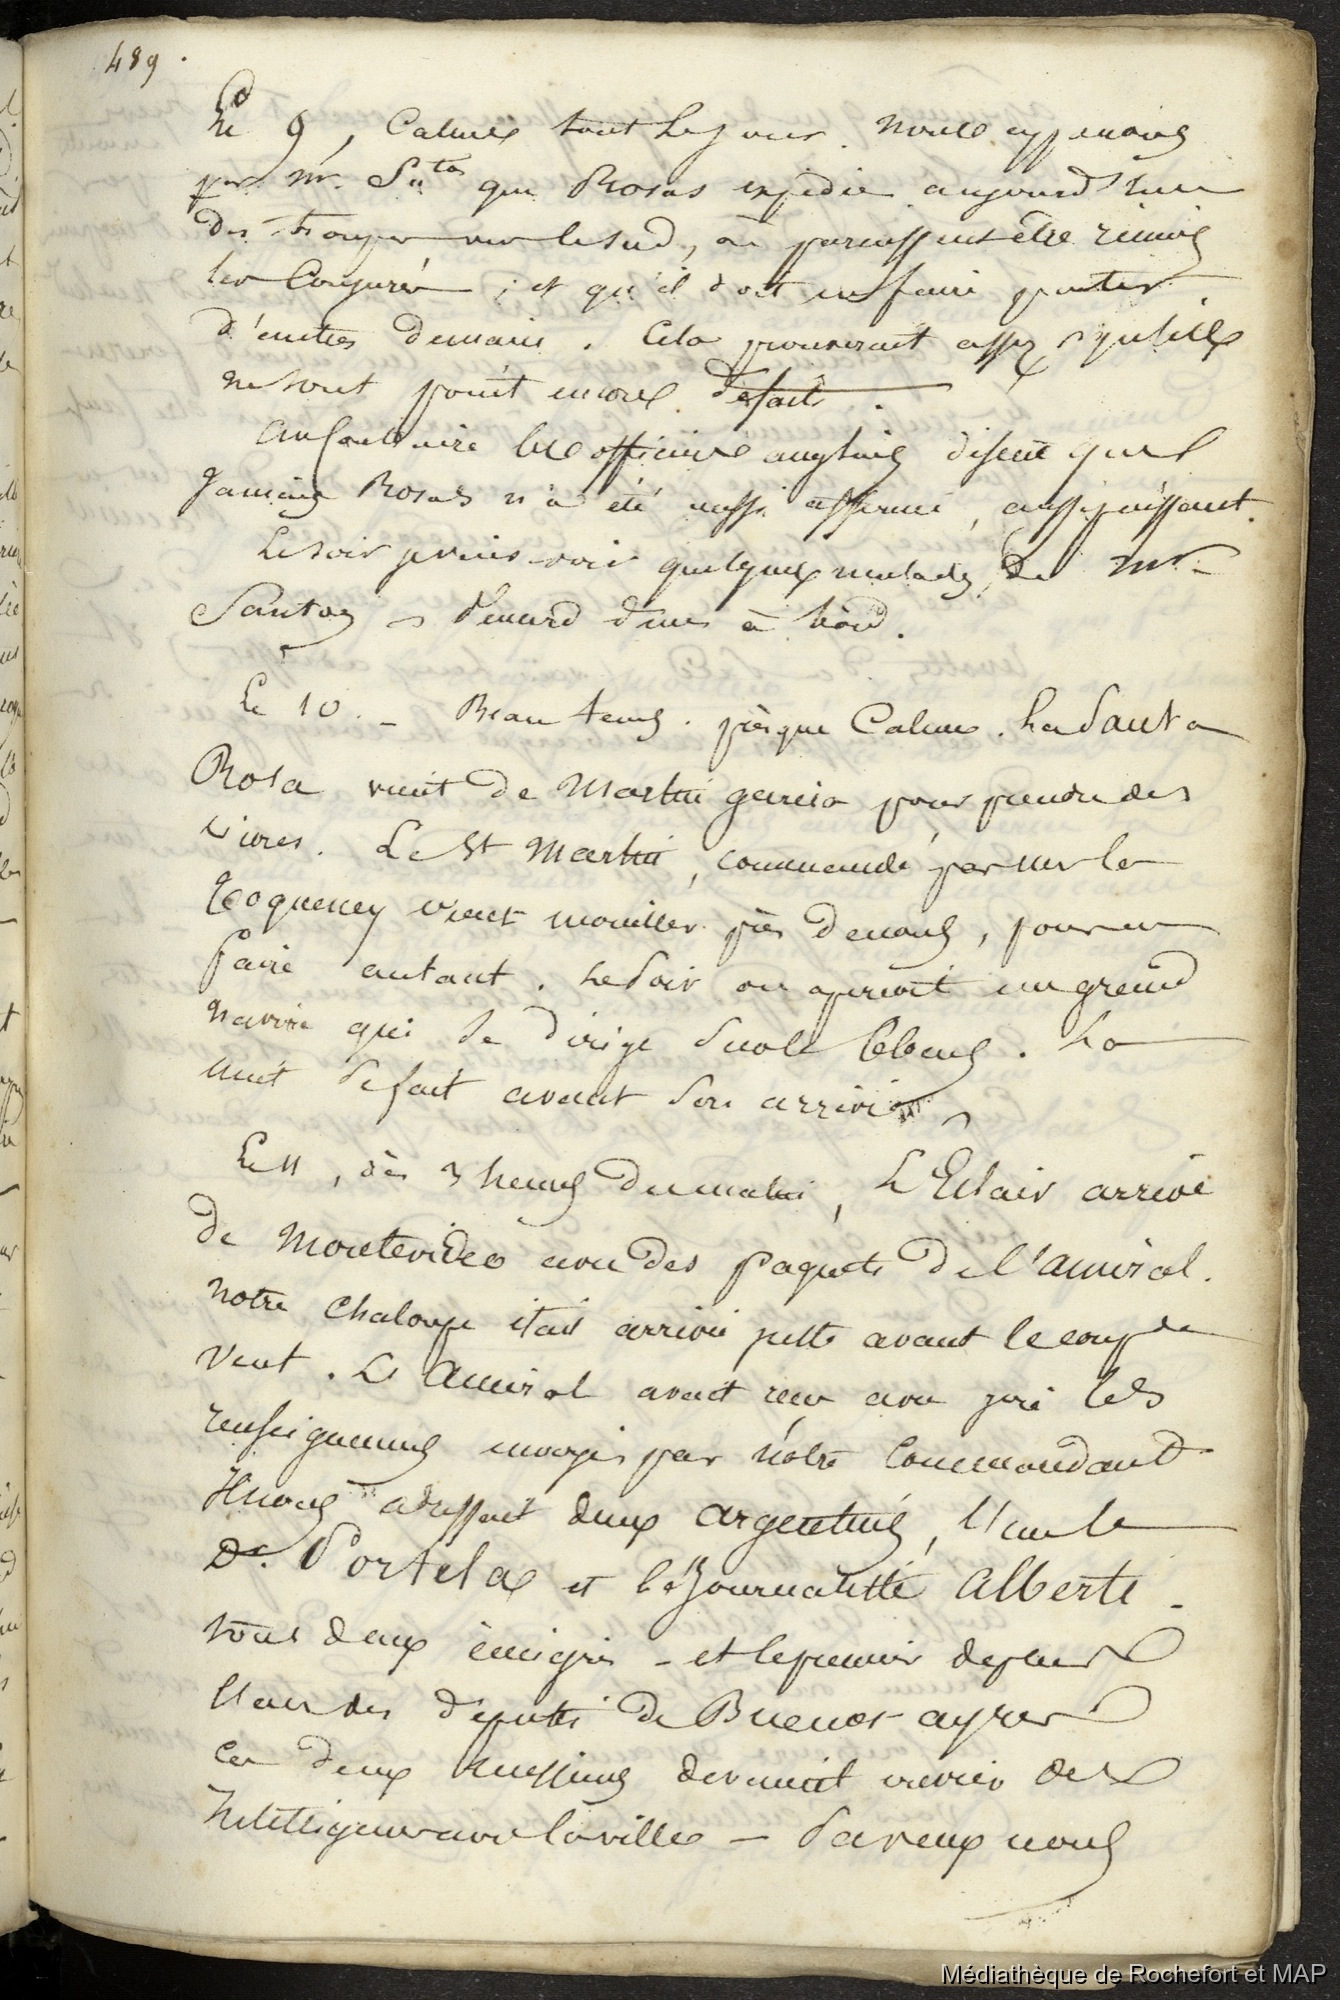 489.
Le 9, Calmes tout le jour. nous apprenons
par mr. Stos que Rosas expédie aujourd'hui
des troupes vers le sud, où paraissent être réunis
les Conjurés ; et qu'il doit en faire partir
d'autres demain. Cela prouverait assez qu'ils
ne sont point encore défaits.
Au Contraire les officiers anglais disent que
Jamais Rosas n'a été aussi affermi, aussi puissant.
Le soir je vais voir quelques malades, de mr
Santos dine à bord.
Le 10. - Beau tems. presque Calme. La Santa
Rosa vient de Martin garcia pour prendre des
vivres. Le St Martin, commandé par mr le
Toqueney vient mouiller près de nous, pour en
faire autant. Le Soir on aperçoit un grand
navire qui se dirige sur le banc. La
nuit se fait avant son arrivée
Le 11, dès 3 heures du matin, L'Eclair arrive
de Montevideo avec des paquets de l'amiral.
notre chaloupe était arrivée juste avant le coup de
vent. L'Amiral avait reçu avec joie les
renseignemens envoyés par notre Commandant
Il nous adressait deux argentins, l'un le
Dr. Portela et le Journaliste Alberti -
tous deux émigrés - et le premier depuis
l'un des députés de Buenos ayres
Ces deux messieurs devaient ouvrir des
Intelligences avec la ville - Saveux nous
Médiathèque de Rochefort et MAP